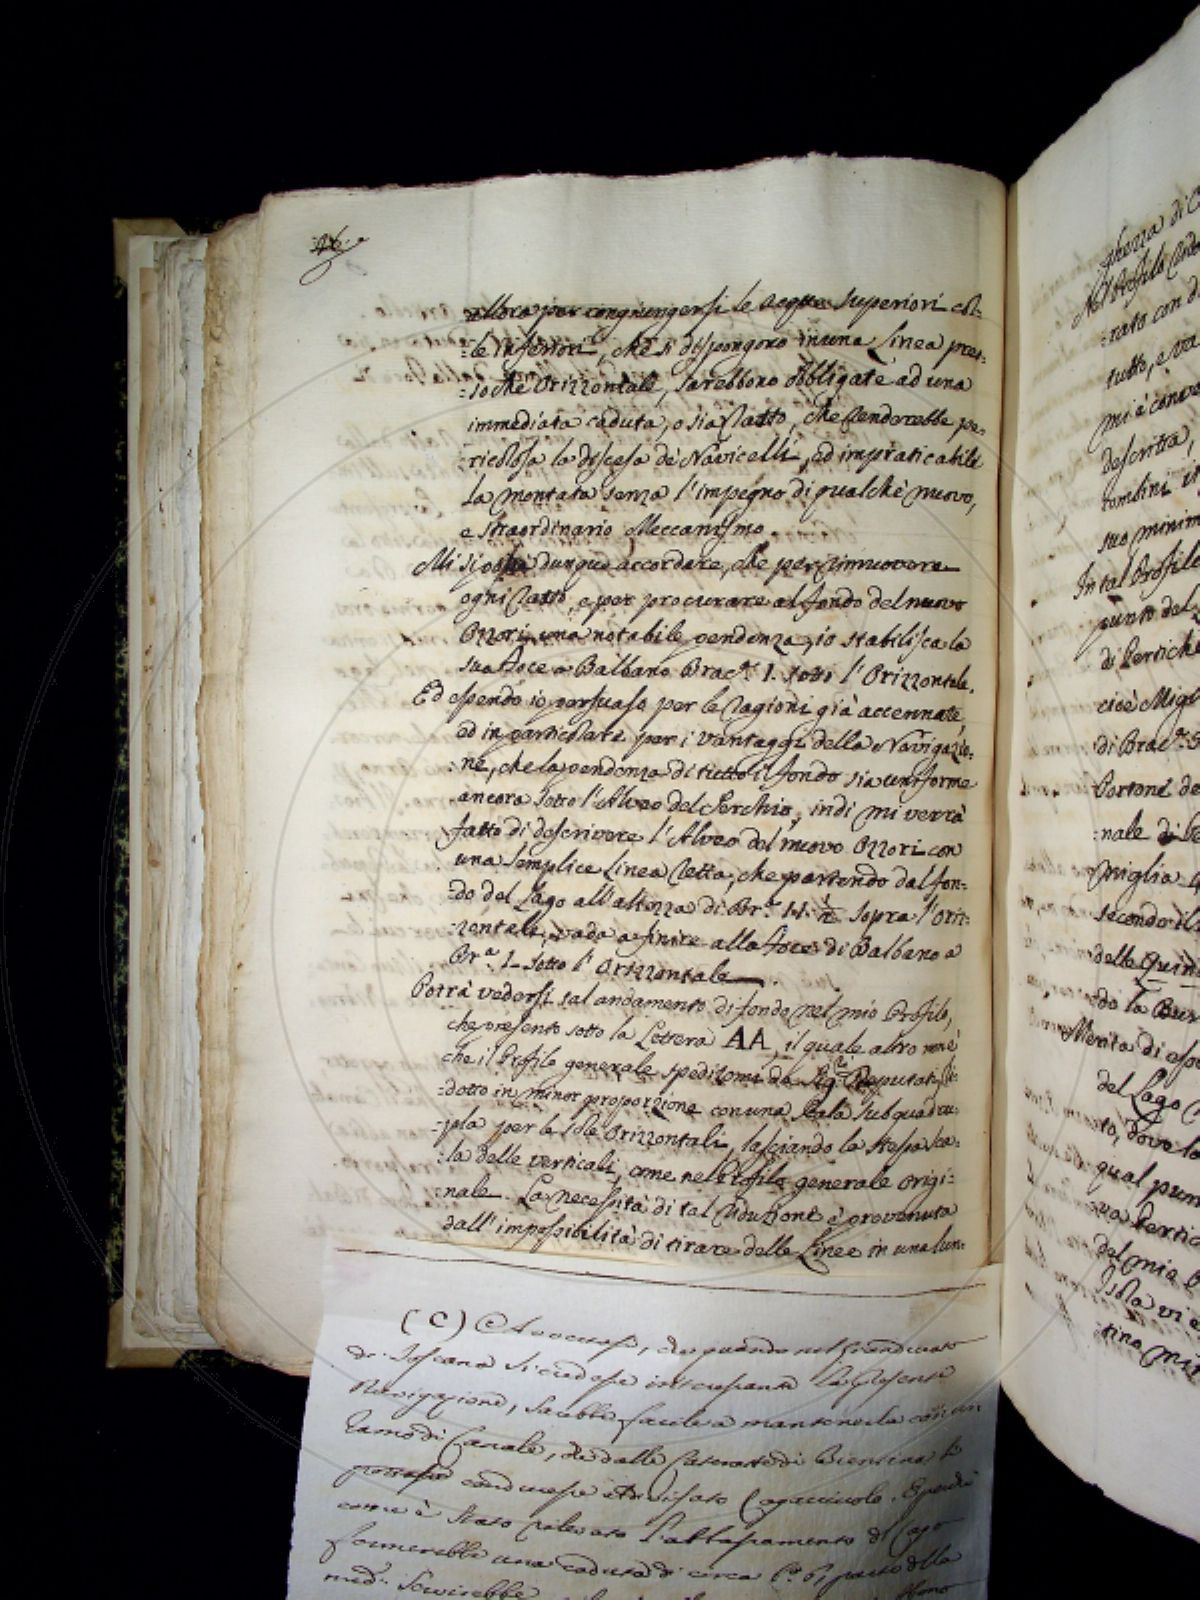 :16:
allora per congiungersi le acque superiori col-
:le inferiori, che si dispongono in una Linea pres-
:so che Orizzontale, sarebbono obbligate ad una
immediata caduta, o sia Ratto, che renderebbe pe-
:ricolosa la discesa de' Navicelli, ed impraticabile
la montata senza l'impegno di qualche nuovo,
e straordinario Meccanismo.
Mi si dovrà dunque accordare, che per rimuovere
ogni Ratto, e per procurare al fondo del nuovo
Ozzori una notabile pendenza, io stabilisca la
sua foce a Balbano Brac.ª 1. sotto l'Orizzontale.
Ed essendo io persuaso per le ragioni già accennate,
ed in particolare per i vantaggi della Navigazio-
:ne, che la pendenza di tutto il fondo sia uniforme
ancora sotto l'Alveo del Serchio, indi mi verrà
fatto di descrivere l'Alveo del nuovo Ozzori con
una semplice Linea Retta, che partendo dal fon-
:do del Lago all'altezza di Br.ª sopra l'Oriz-
:zontale, vada a finire alla foce di Balbano a
Br.ª 1. sotto l'Orizzontale
Potrà vedersi tal andamento di fondo nel mio Profilo,
che presento sotto la Lettera AA, il quale altro non è
che il Profilo generale speditomi da Sig.ri Deputati, ri-
:dotto in minor proporzione con una Scala subquadru-
:pla per le sole Orizzontali, lasciando la stessa sca-
:la delle verticali, come nel Profilo generale origi-
:nale. La necessità di tal riduzione è provenuta
dall'impossibilità di tirare delle Linee in una lun-
(C) che quando nel Granducato
di Toscana si credesse interessante la presente
Navigazione, sarebbe facile a mantenerla con un
Ramo di Canale, che dalle Cateratte di Bientina si
conducesse Ependi
come è stato rilevato l'abbassamento del Lago
formerebbe una caduta di circa b.ª 6, parte della
med.ª servirebbe
ghezza di
Nel Profilo
:rato con di
tutto, e va
mi è conve
descritta,
tombini in
suo minim
In tal Profile
punto del
di Pertiche
cioè Migl
di Brac.ª 5
Portone de
:nale di Be
miglia 4
secondo il
delle Quind
do la Bur
Merita di esse
del Lago
:to, dove lo
qual pun
:va Pertic
del mio
Isola vi è
:tina mi